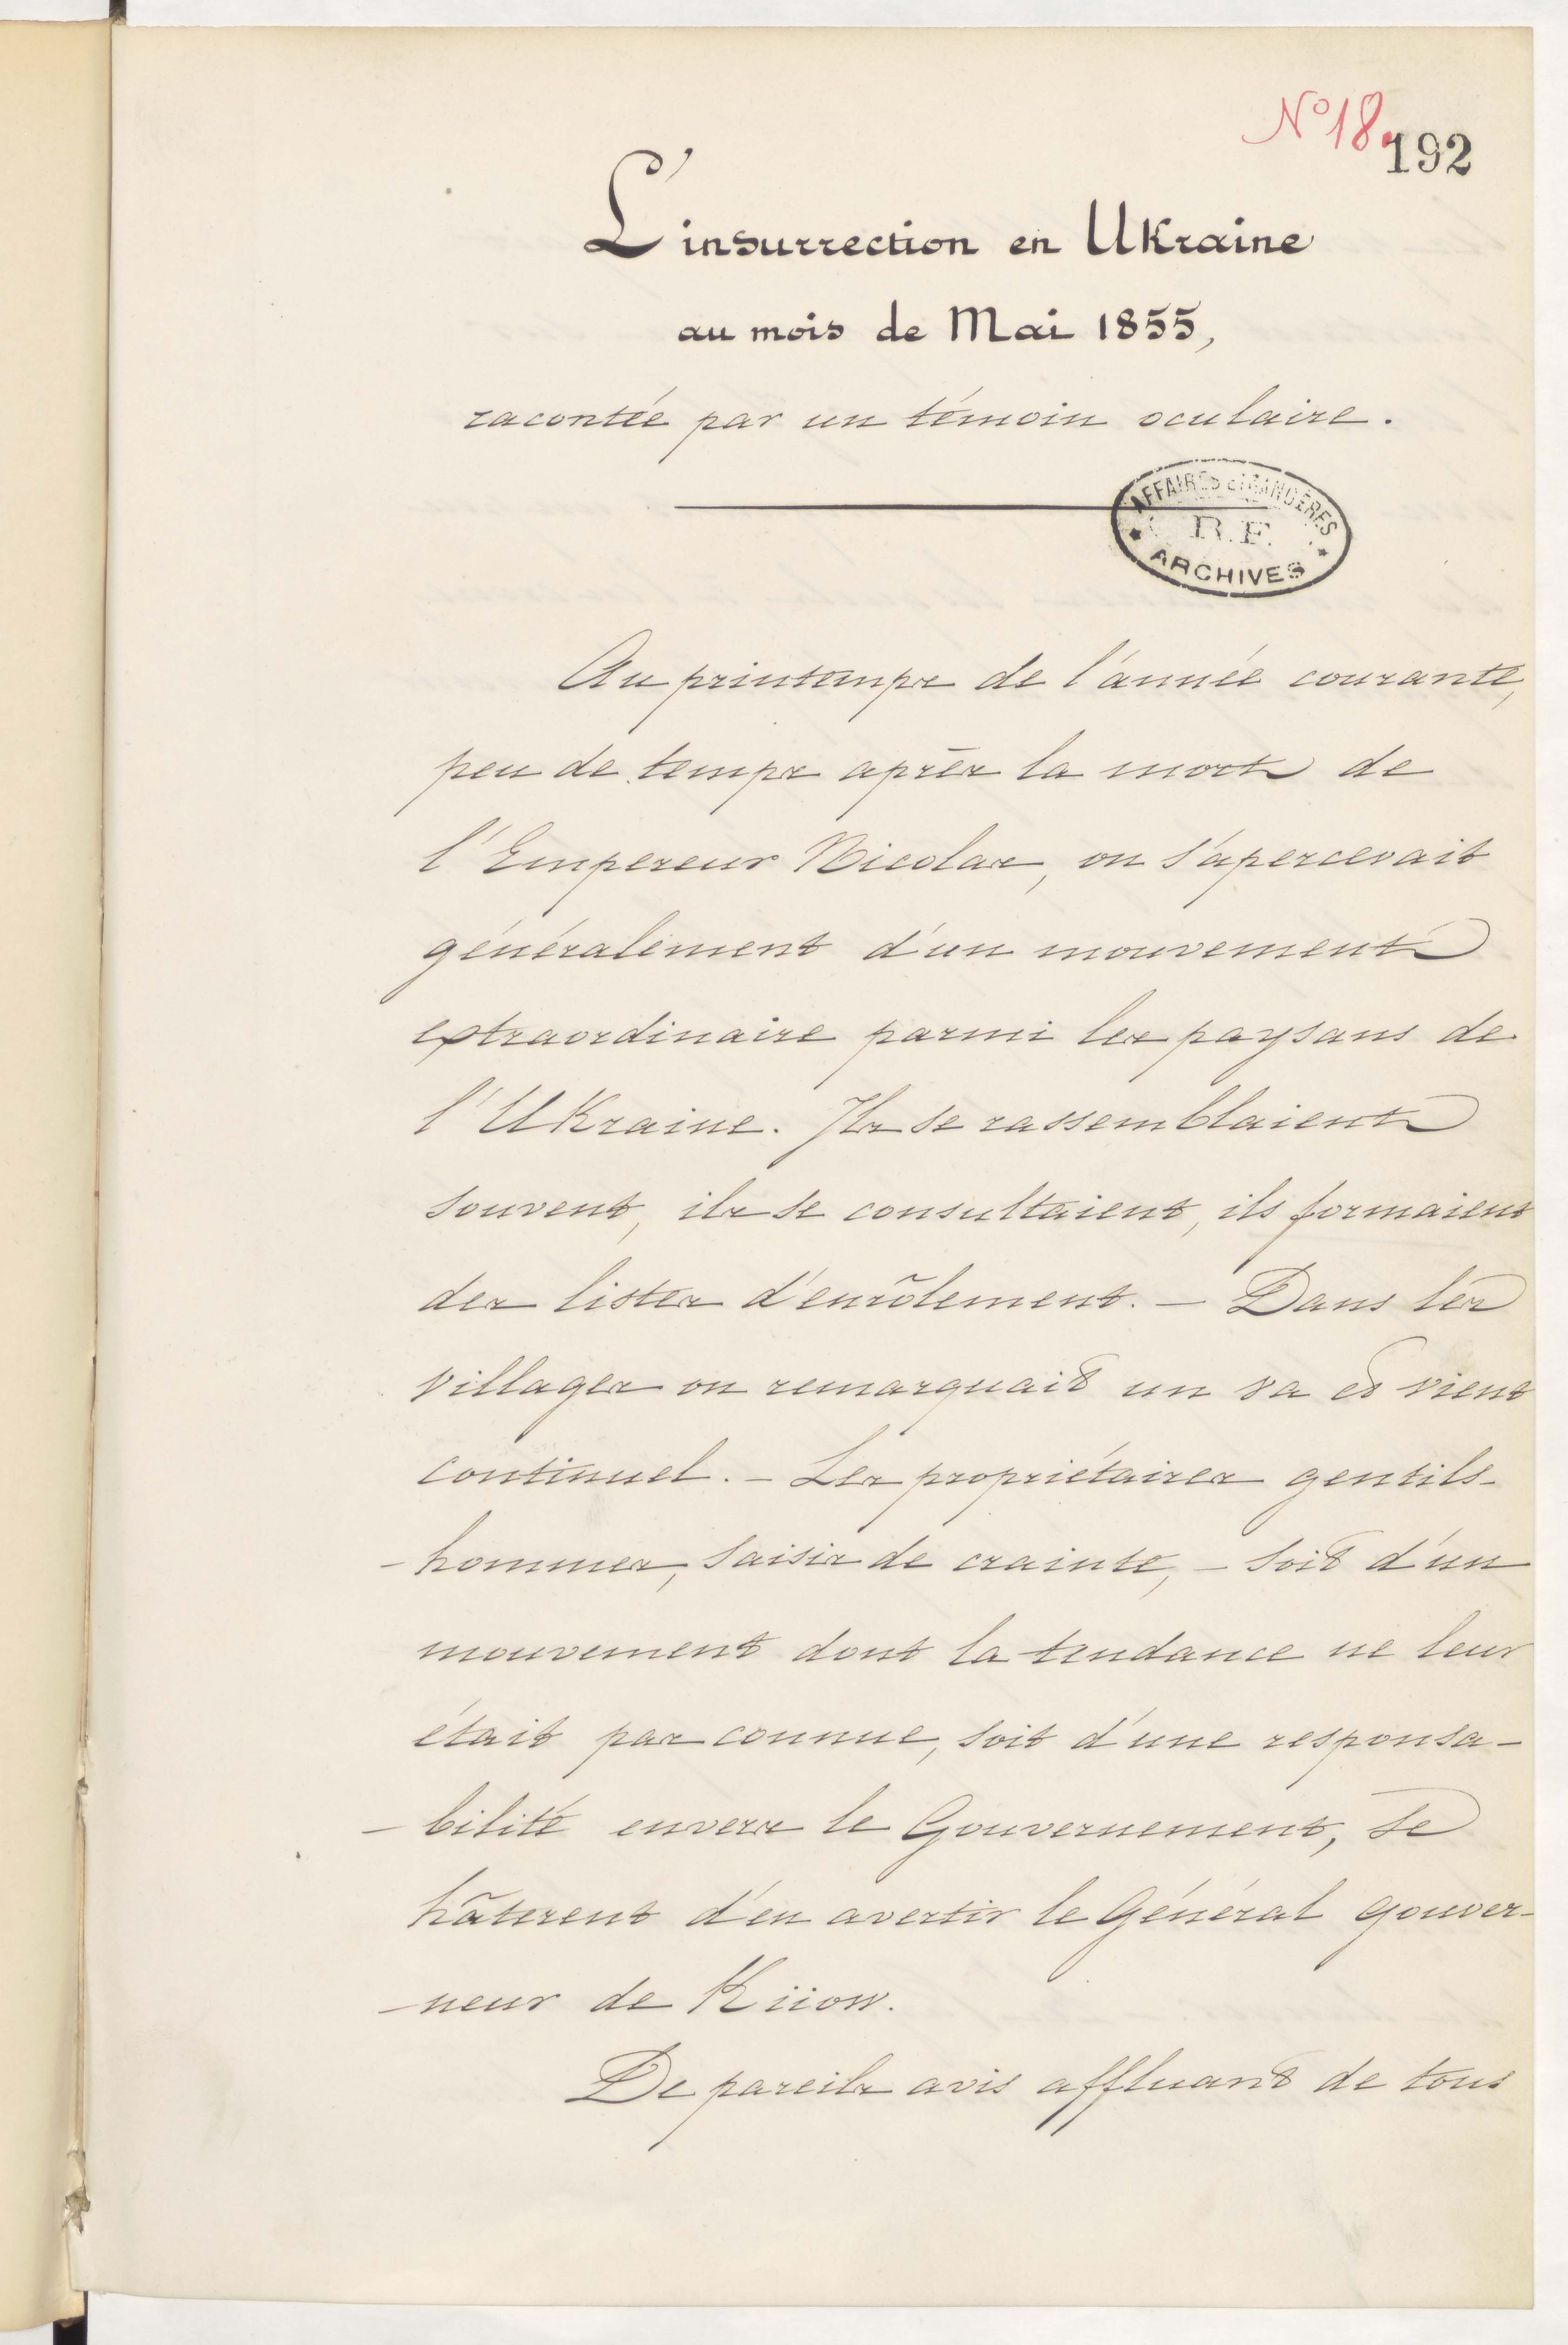 N° 18.
192
L'insurrection en Ukraine
au mois de Mai 1855,
racontée par un témoin oculaire.
AFFAIRES ETRANGÈRES
R.F.
ARCHIVES
Au printemps de l'année courante,
peu de temps après la mort de
l'Empereur Nicolas, on s'apercevait
généralement d'un mouvement
extraordinaire parmi les paysans de
l'Ukraine. Ils se rassemblaient
souvent, ils se consultaient, ils formaient
des listes d'enrôlement. — Dans les
villages on remarquait un va et vient
continuel. — Les propriétaires gentils-
-hommes, saisis de crainte, — soit d'un
mouvement dont la tendance ne leur
était pas connue, soit d'une responsa-
-bilité envers le Gouvernement, se
hâterent d'en avertir le Général gouver-
-neur de Kiiow.
De pareils avis affluant de tous